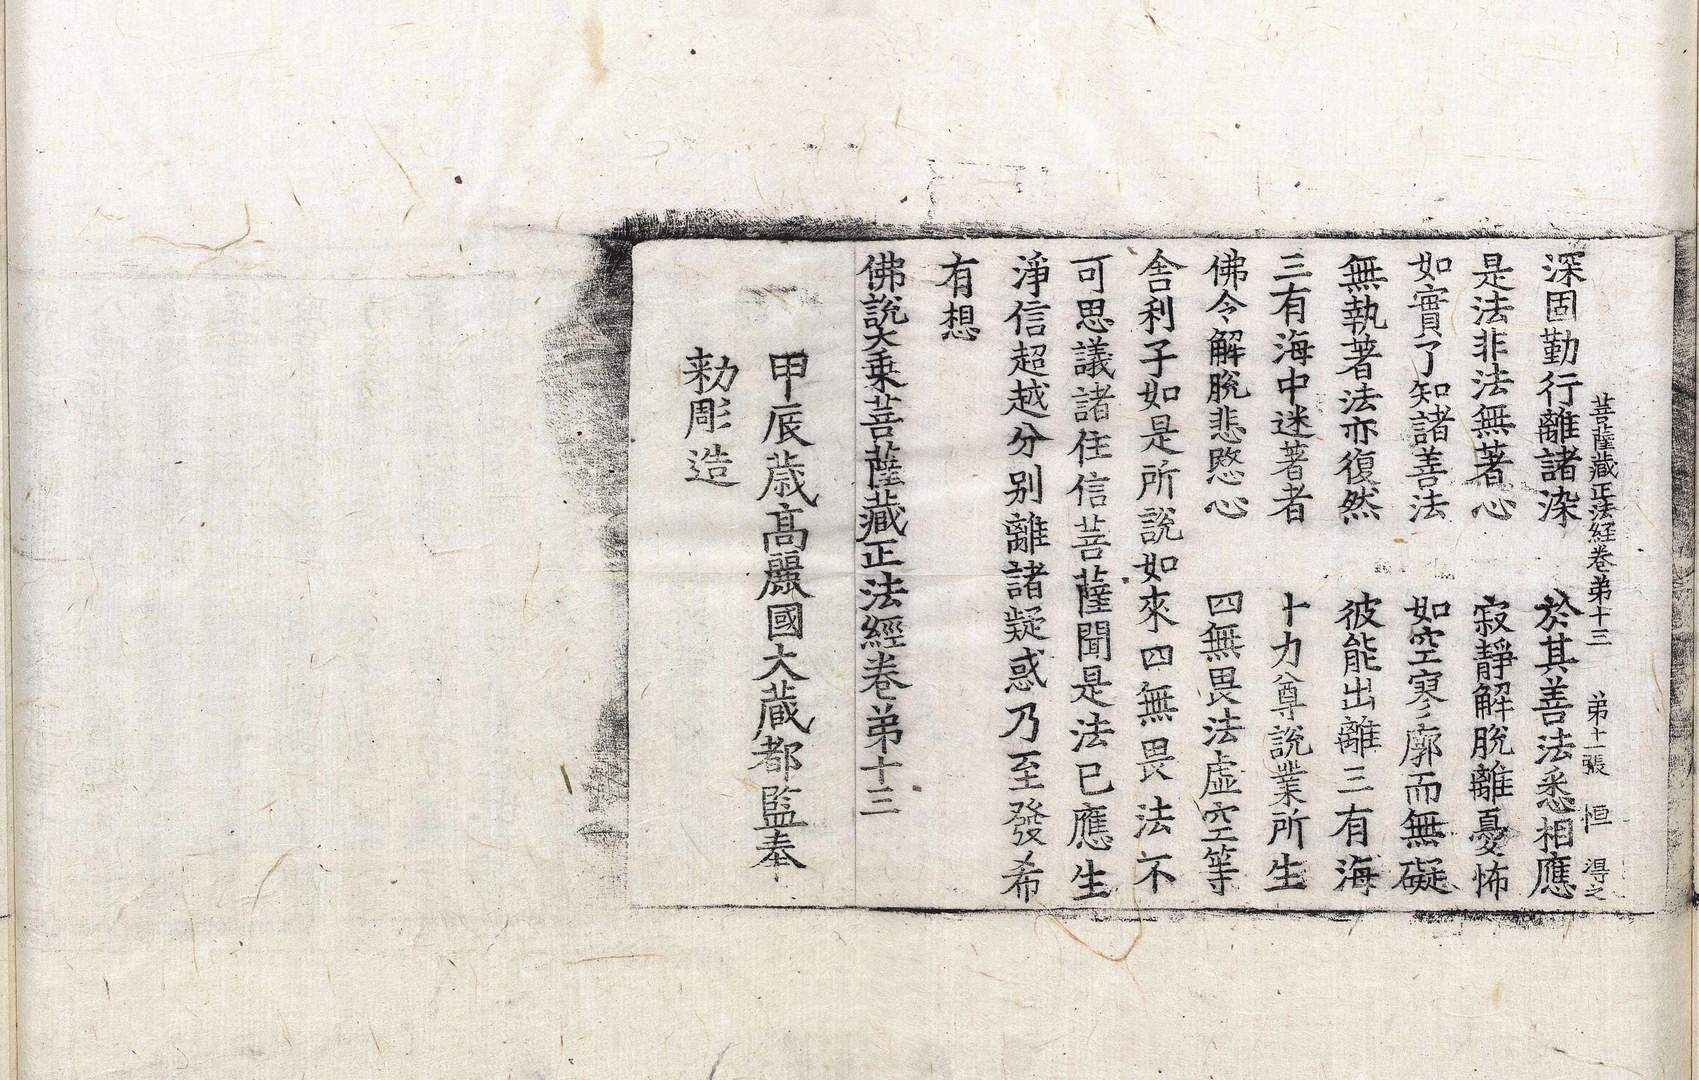 菩薩藏正法經卷弟十三 弟十一張 恒 得之
深固勤行離諸染 於其善法悉相應
是法非法無著心 寂靜解脫離憂怖
如實了知諸善法 如空寥廓而無礙
無執著法亦復然 彼能出離三有海
三有海中迷著者 十力尊說業所生
佛令解脫悲愍心 四無畏法虛空等
舍利子如是所說如來四無畏法不
可思議諸住信菩薩聞是法已應生
淨信超越分別離諸疑惑乃至發希
有想
佛說大乗菩薩藏正法經卷弟十三
甲辰歲高麗國大藏都監奉
勑彫造